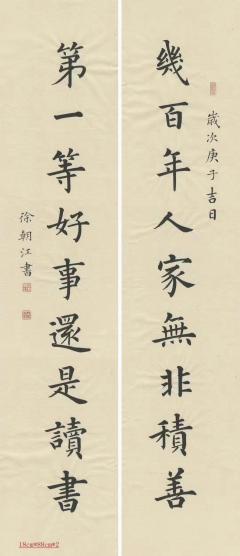 歲次庚子吉日
幾百年人家無非積善
第一等好事還是讀書
徐朝江書
18cm*88cm*2